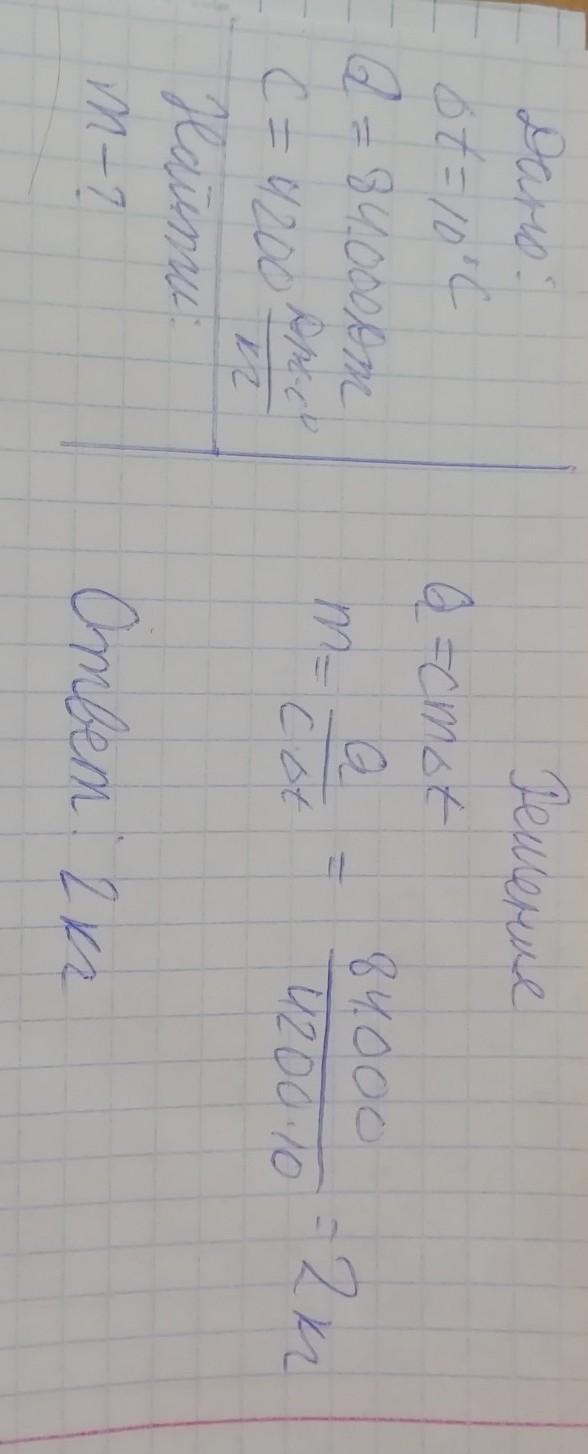 Дано:
Δt = 10°C
Q = 84.000Дж
C = 4200 Дж·C° / кг
Найти:
m - ?
Решение
Q = cmΔt
m = Q / C·Δt = 84.000 / 4200·10 = 2 кг
Ответ: 2 кг